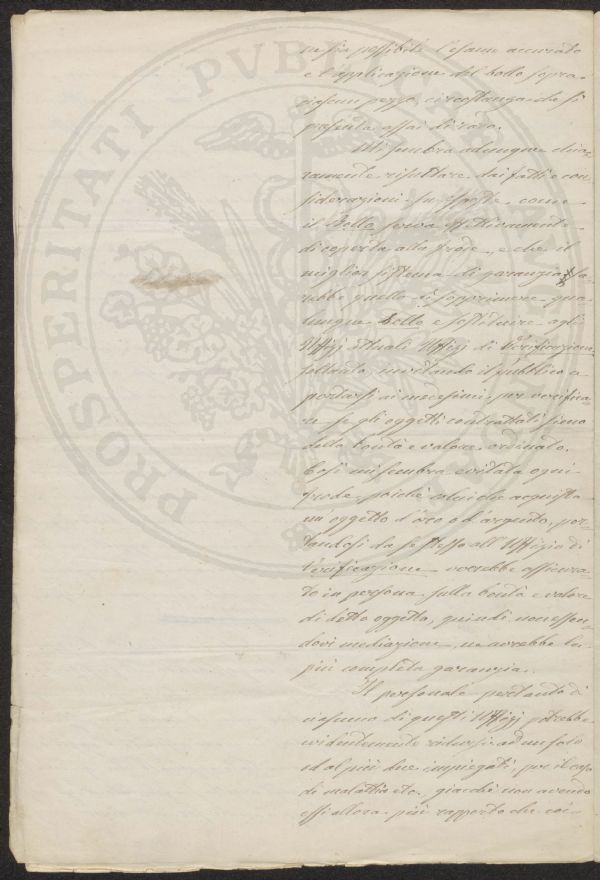 PROSPERITATI PUBLICAE
ne sia possibile l'esame accurato
e l'applicazione del bollo sopra
ciascun pezzo, circostanza che si
presenta assai di raro.
Mi sembra adunque chia=
ramente risultare dai fatti e con=
siderazioni suesposte, come
il Bollo serva effettivamente
di coperta alla frode, e che il
miglior sistema di garanzia sa=
rebbe quello di sopprimere qua=
lunque Bollo e sostituire agli
Uffizj attuali Uffizj di Verificazione
soltanto, invitando il pubblico a
portarsi ai medesimi, per verifica=
re se gli oggetti contrattati siano
della bontà e valore ordinato.
Così mi sembra evitata ogni
frode, poiché colui che acquista
un oggetto d'oro o d'argento, por=
tandosi da se stesso all'Uffizio di
Verificazione verrebbe assicura=
to in persona sulla bontà e valore
di detto oggetto, quindi non essen=
dovi mediazione, ne avrebbe la
più completa garanzia.
Il personale pertanto di
ciascuno di questi Uffizj potrebbe
evidentemente ridursi ad un solo
od al più due impiegati, per il caso
di malattia etc. giacché non avendo
essi allora più rapporto che coi